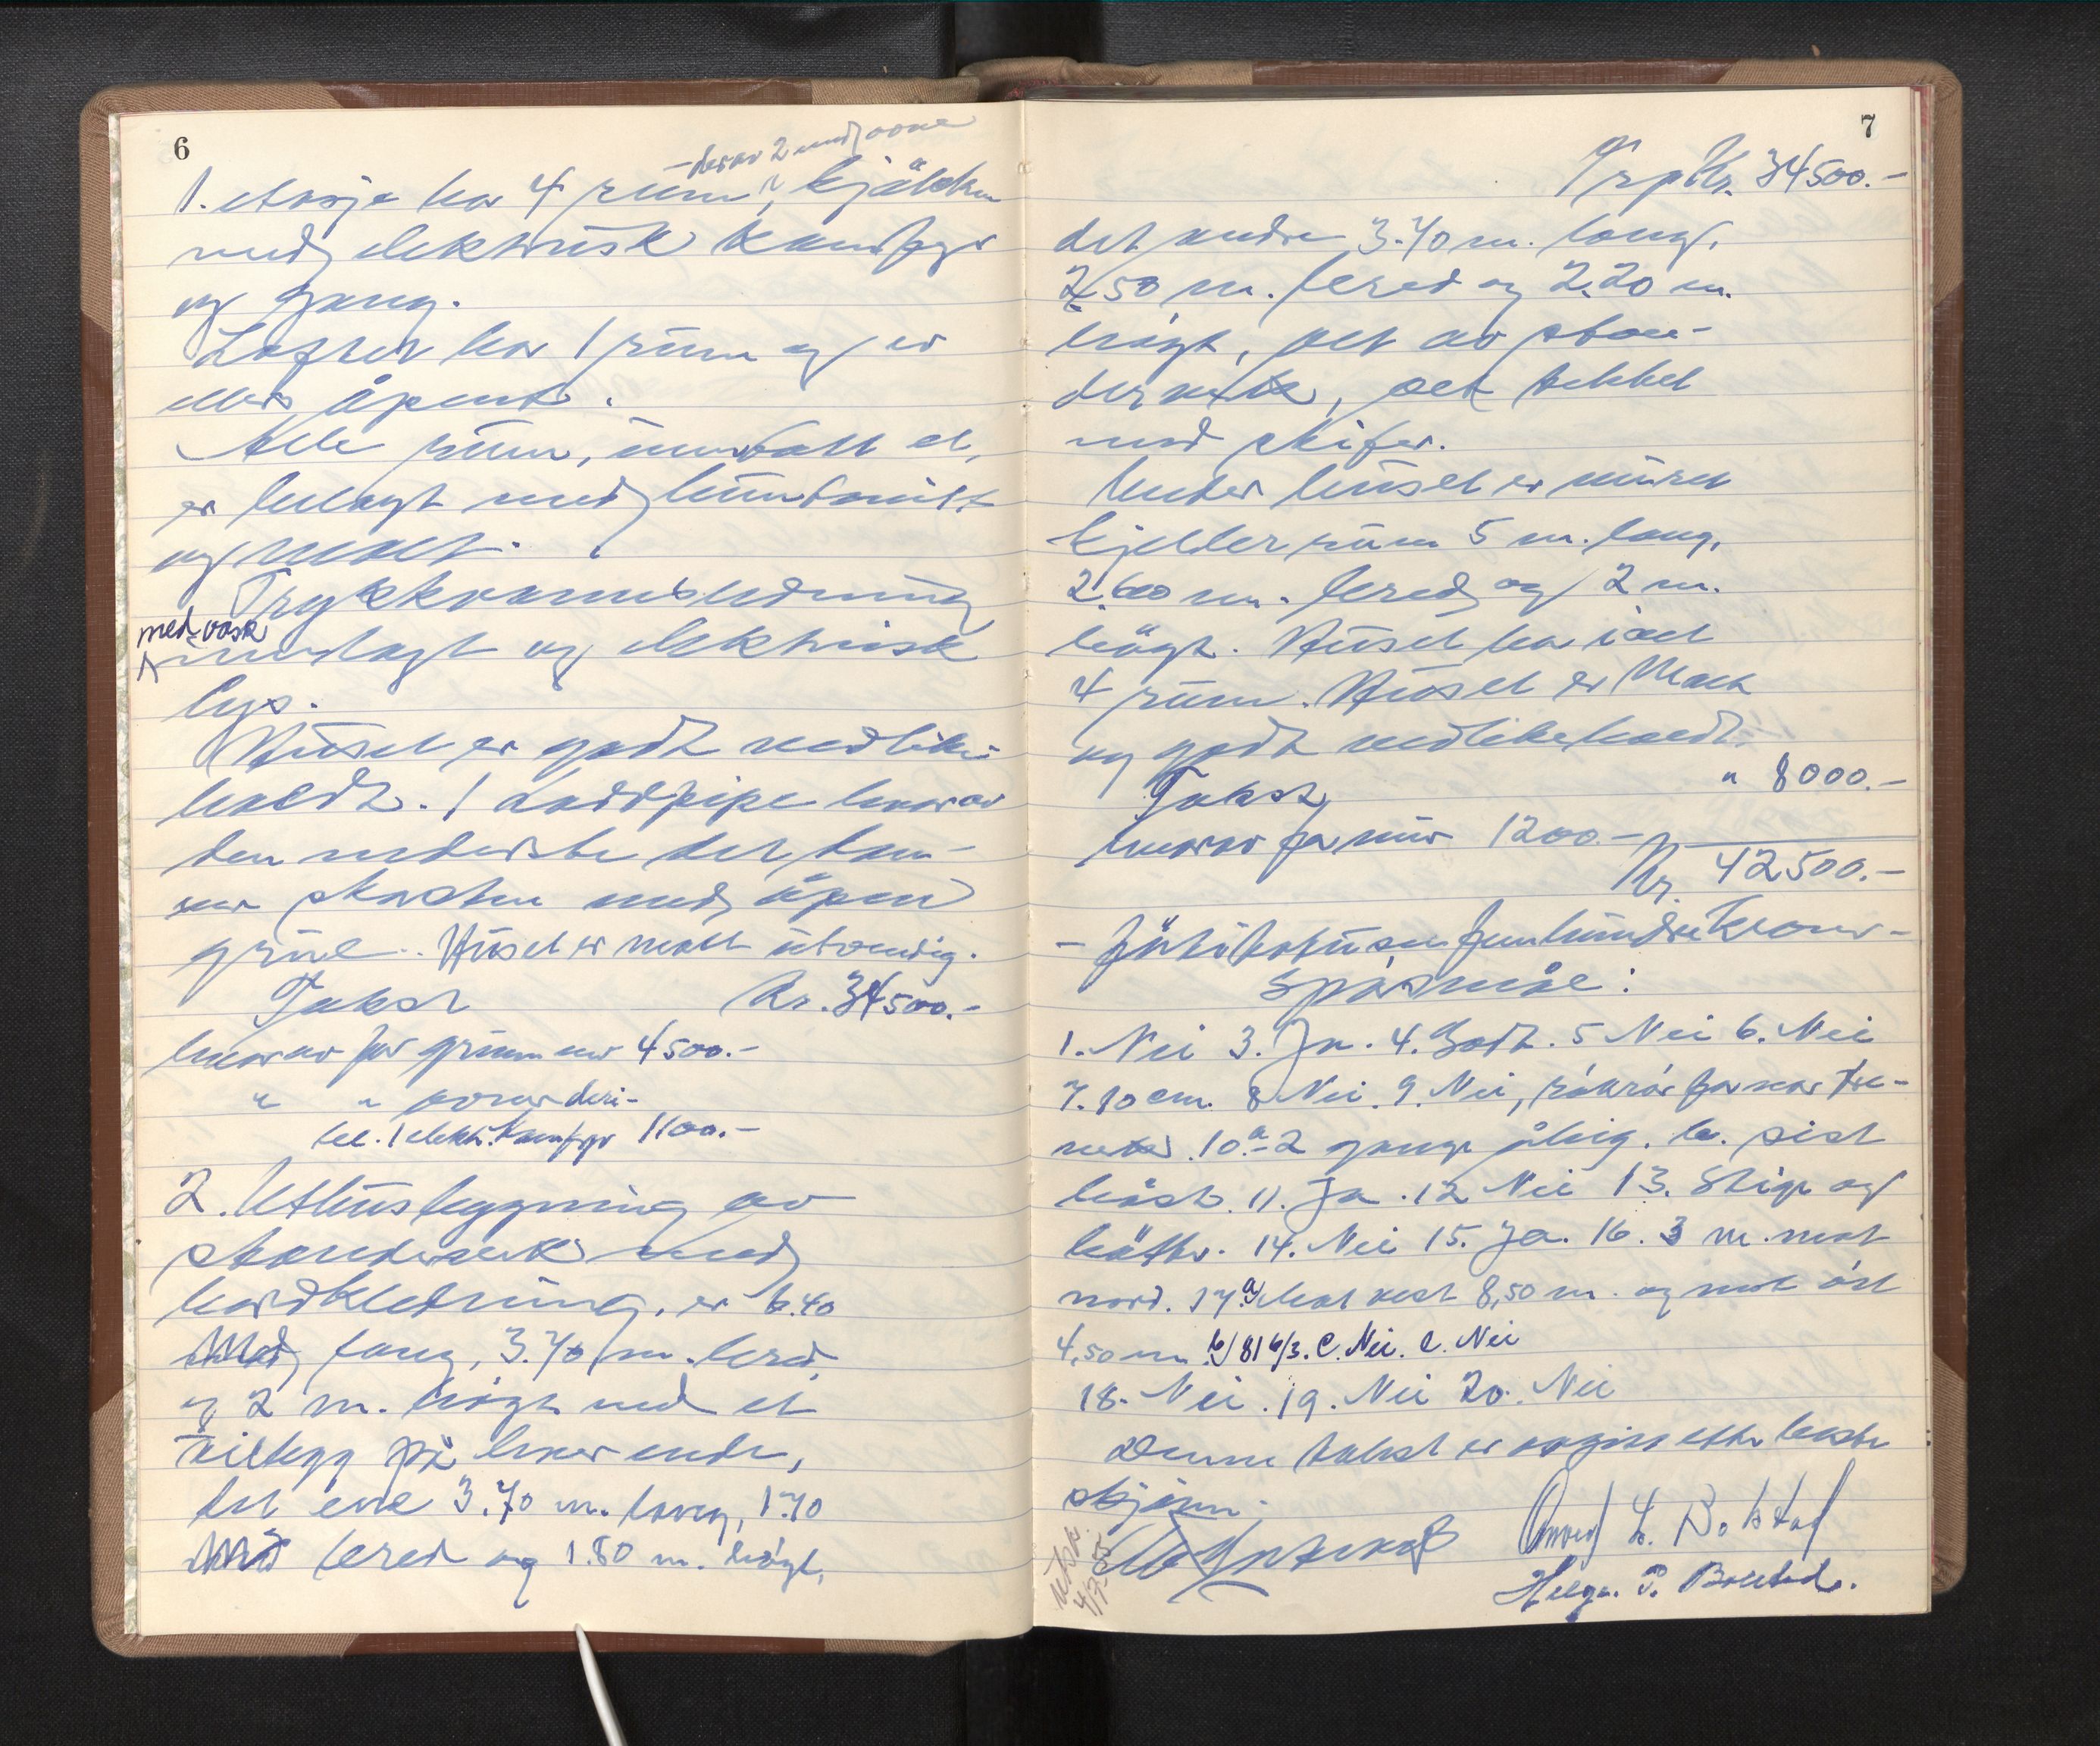 6
- derav 2 med ovne
1. etasje har 4 rum, kjøkken
med elektrisk kamfyr
og gang.
Loftet har 1 rum og er
ellers åpent.
Alle rum, unntatt et,
er belagt med huntonitt
og malt.
Trykkvannsledning
med vask
innlagt og elektrisk
lys.
Huset er godt vedlike-
holdt. 1 Loddpipe hvorav
den nederste del dan-
ner skorsten med åpen
grue. Huset er malt utvendig.
Takst Kr. 34500.-
hvorav for grunnmur 4500.-
" " ovner deri-
bl. 1 elektr. kamfyr 1100.-
2. Uthusbygning av
standerverk med
bordkledning, er 6.40
lang, 3.70 m. bred
og 2 m. høgt med et
tilbygg på hver ende,
det ene 3.70 m. lang, 1.70
bred og 1.80 m. høgt,
7
Trp Kr. 34500.-
det andre 3.70 m. lang,
2.50 m. bred og 2.20 m.
høgt, alt av stan-
derverk, alt tekket
med skifer.
Under huset er muret
kjellerrum 5 m. lang,
2.60 m. bred og 2 m.
høgt. Huset har i alt
4 rum. Huset er malt
og godt vedlikeholdt.
Takst " 8000.-
hvorav for mur 1200.-
Kr. 42500.-
- førtitotusenfemhundre kroner -
Spørsmål:
1. Nei 3. Ja. 4. Godt. 5 Nei 6. Nei
7. 10 cm. 8 Nei. 9. Nei, rökrör for nær tre-
. 10.a - 2 gange årlig. b. sist
høst. 11. Ja. 12 Nei 13. Stige og
bøtter. 14. Nei 15. Ja. 16. 3 m. mot
nord. 17.a) Mot vest 8,50 m. og mot öst
4,50 m. b/ 81 6/3. C. Nei. C. Nei
18. Nei. 19. Nei 20. Nei
Denne takst er avgitt efter beste
skjønn.
Utsk.
4/7-55
L. Bolstad
Helge P. Bolstad.